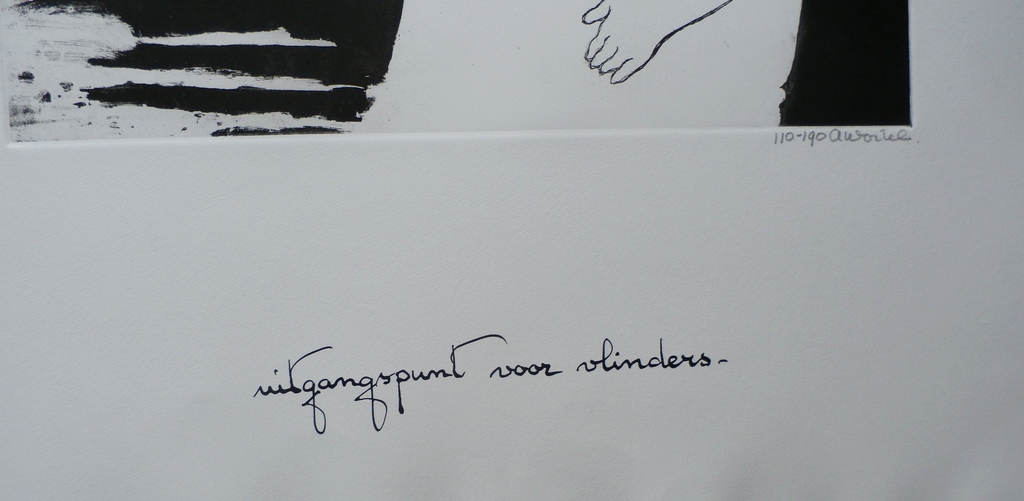 110-190
uitgangspunt voor vlinders-